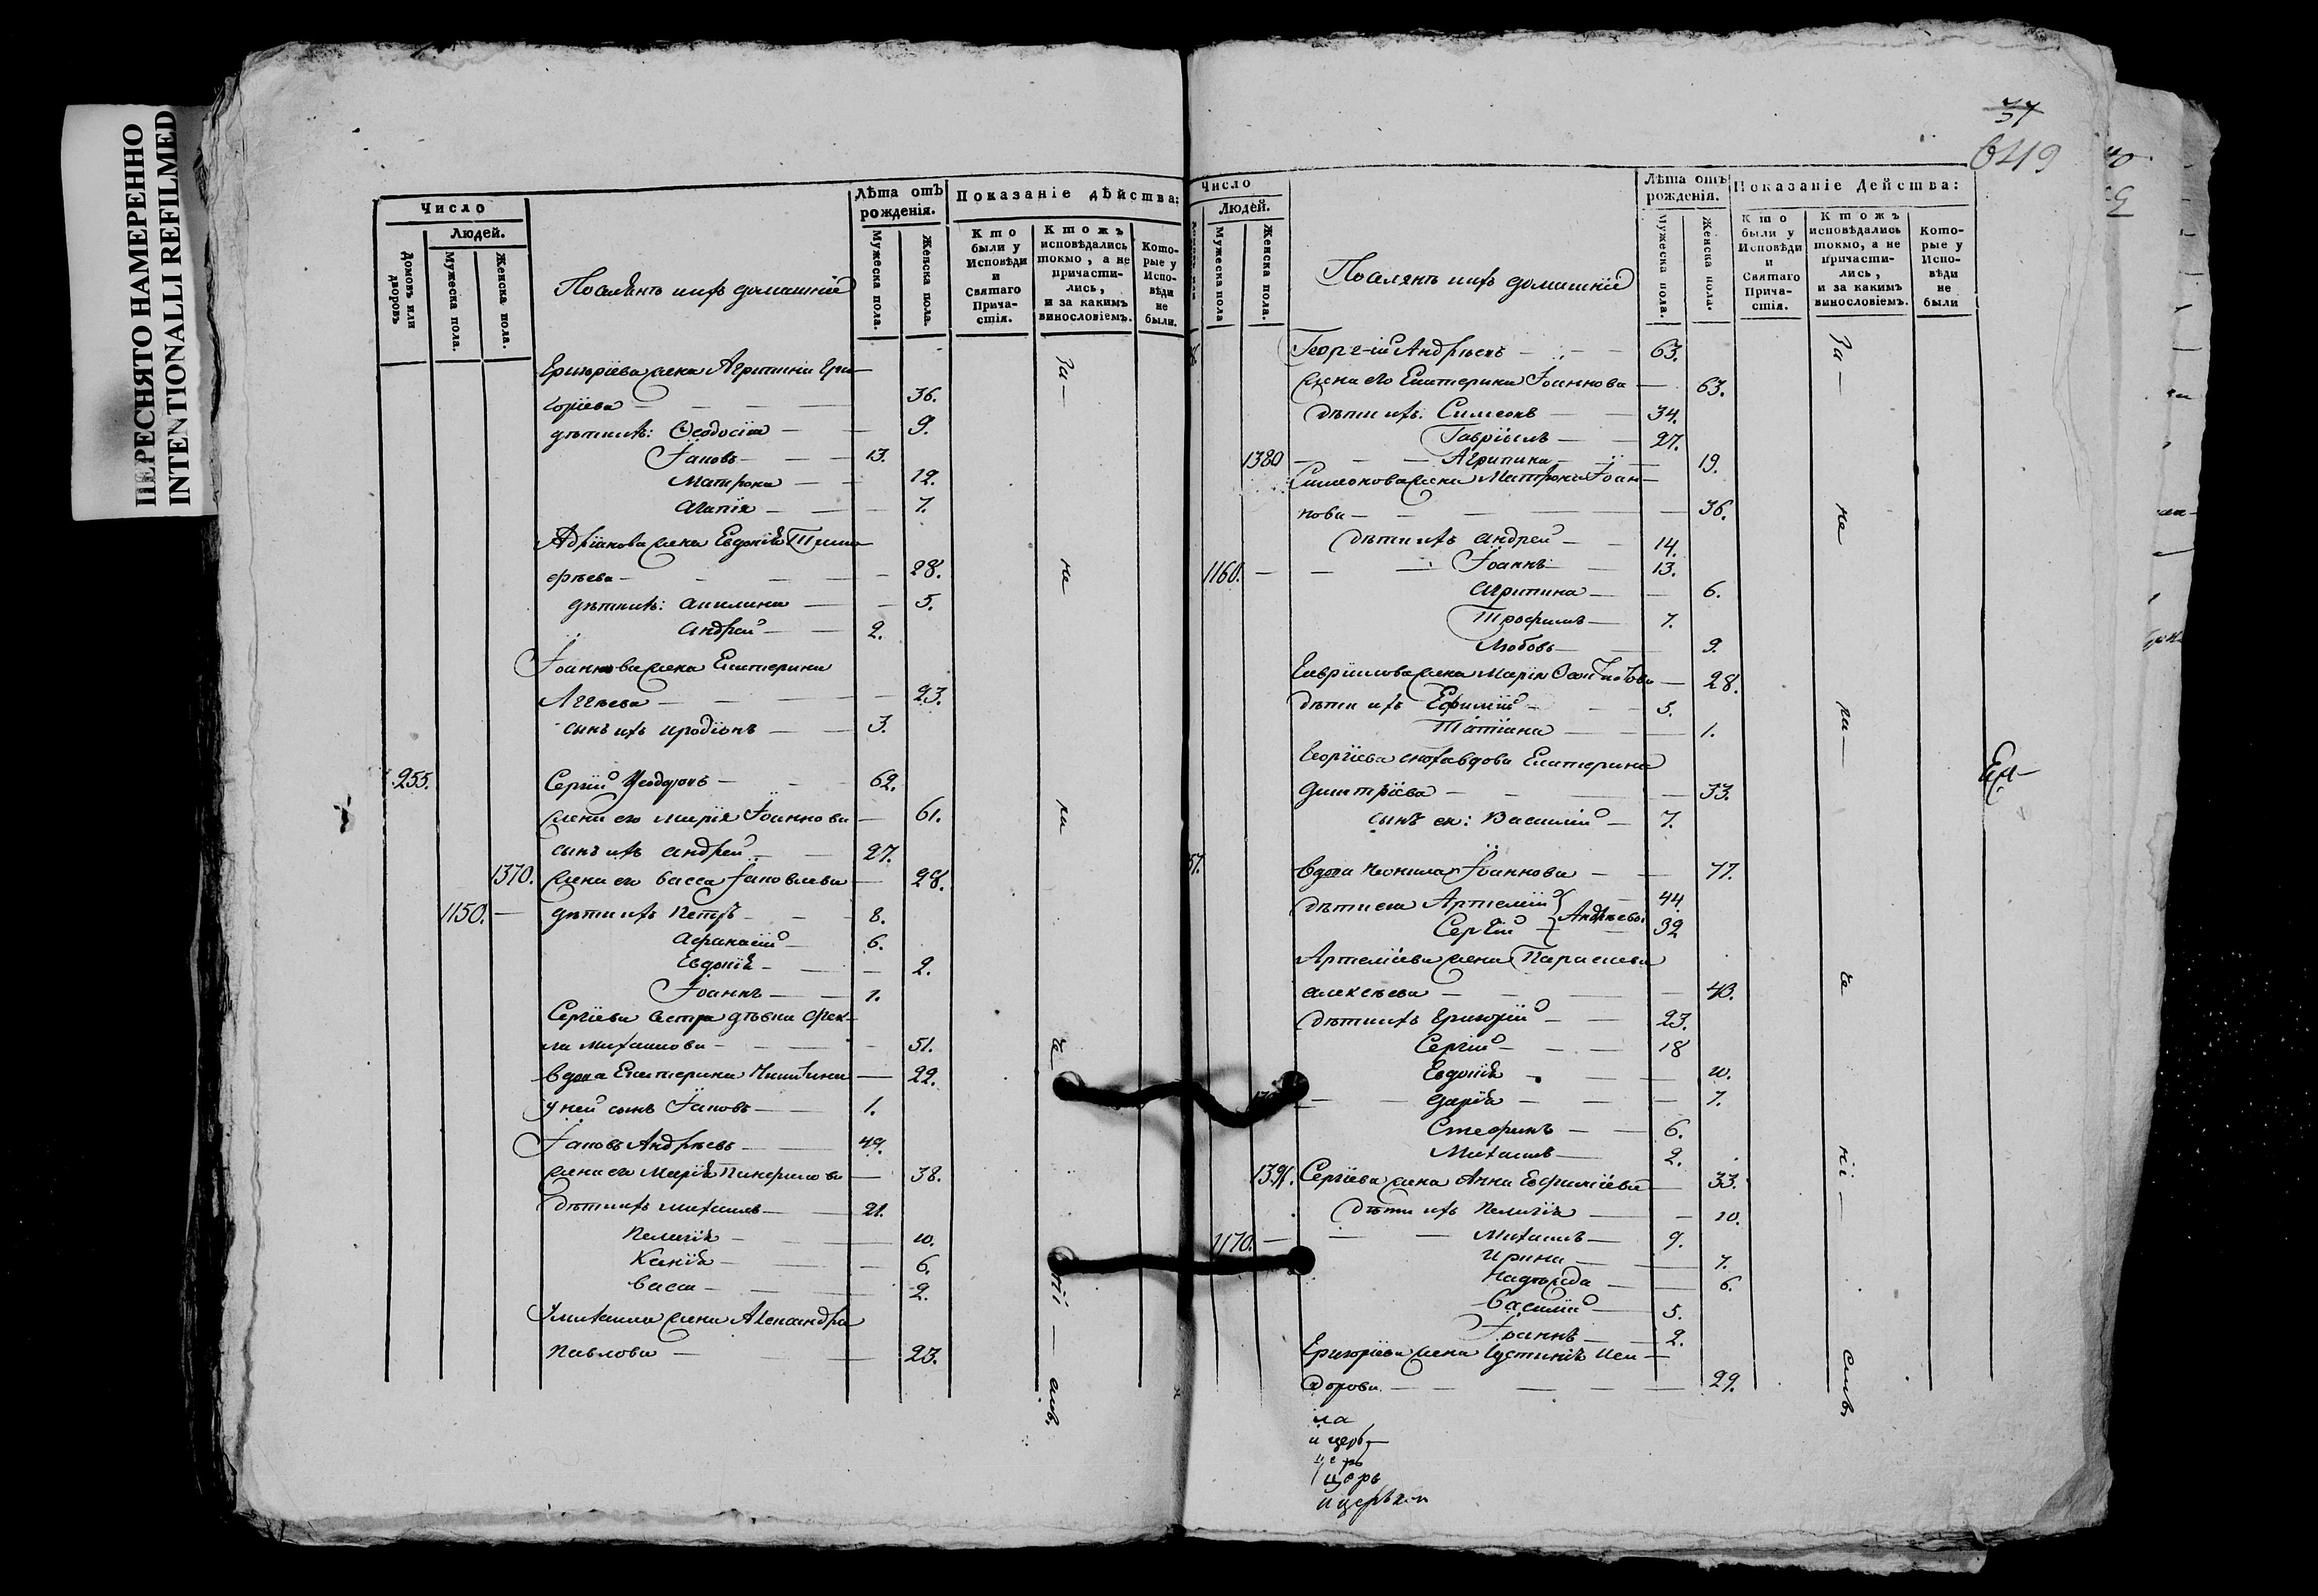 ПЕРЕСНЯТО НАМЕРЕННО
INTENTIONALLI REFILMED
Число
Людей.
Домовъ или дворовъ
Мужеска пола.
Женска пола.
Поселянъ ихъ домашнiй
Лѣта отъ рожденiя.
Мужеска пола.
Женска пола.
Показанiе дѣйства:
Кто были у Исповѣди и Святаго Прича-стiя.
Ктожъ исповѣдались токмо, а не причасти-лись, и за какимъ винословiемъ.
Кото-рые у Испо-вѣди не были.
Григорiева жена Агрипина Гри-
горiева 36.
дѣти ихъ: Ѳеодосiя 9.
Iаковъ 13.
Матрона 12.
Агапiя 7.
Адрiанова жена Евдокiя Тимо-
фѣева 28.
дѣти ихъ: Акилина 5.
Андрей 2.
Iоаннова жена Екатерина
Аггѣева 23.
сынъ ихъ Иродiонъ 3.
255. Сергiй Ѳеодоровъ 62.
жена его Марiя Iоаннова 61.
сынъ ихъ Андрей 27.
1370. жена его Васса Iаковлева 28.
1150. дѣти ихъ Петръ 8.
Афанасiй 6.
Евдокiя 2.
Iоаннъ 1.
Сергiева сестра дѣвка Фек-
ла Михаилова 51.
вдова Екатерина Никитина 22.
у ней сынъ Iаковъ 1.
Iаковъ Андрѣевъ 49.
жена его Марiя 38.
дѣти ихъ Михаилъ 21.
Пелагiя 10.
Ксенiя 6.
Васса 2.
Михаила жена Александра
Павлова 23.
За не ра че нi емъ
37
649
Число
Людей.
Мужеска пола
Женска пола.
Поселянъ ихъ домашнiй
Лѣта отъ рожденiя.
Мужеска пола.
Женска пола.
Показанiе Действа:
Кто были у Исповѣди и Святаго Прича-стiя.
Ктожъ исповѣдались токмо, а не причасти-лись, и за какимъ винословiемъ.
Кото-рые у Испо-вѣди не были
Георгiй Андрѣевъ 63.
жена его Екатерина Iоаннова 63.
дѣти ихъ: Симеонъ 34.
Гаврiилъ 27.
1380 Агрипина 19.
Симеонова жена Матрона Iоан-
нова 36.
дѣти ихъ Андрей 14.
1160. Iоаннъ 13.
Агрипина 6.
Трофимъ 7.
Любовь 2.
Гаврiилова жена Марiя 28.
дѣти ихъ Ефимiй 5.
Татiана 1.
Георгiева сноха вдова Екатерина
Димитрiева 33.
сынъ ея: Василiй 7.
57. вдова Неонила Iоаннова 77.
дѣти ея Артемiй 44
Сергiй } Андрѣевы 32
Артемiева жена Параскева
Алексѣева 43.
дѣти ихъ Григорiй 23.
Сергiй 18
Евдокiя 10.
Дарiя 7.
Стефанъ 6.
Михаилъ 2.
Сергiева жена Анна Евфимiева 33.
дѣти ихъ Пелагiя 10.
1170. Михаилъ 9.
Ирина 7.
Надежда 6.
Василiй 5.
Iоаннъ 2.
Григорiева жена Iустинiя Иси-
дорова 29.
За не ра че нi емъ
ла
и церь
церь